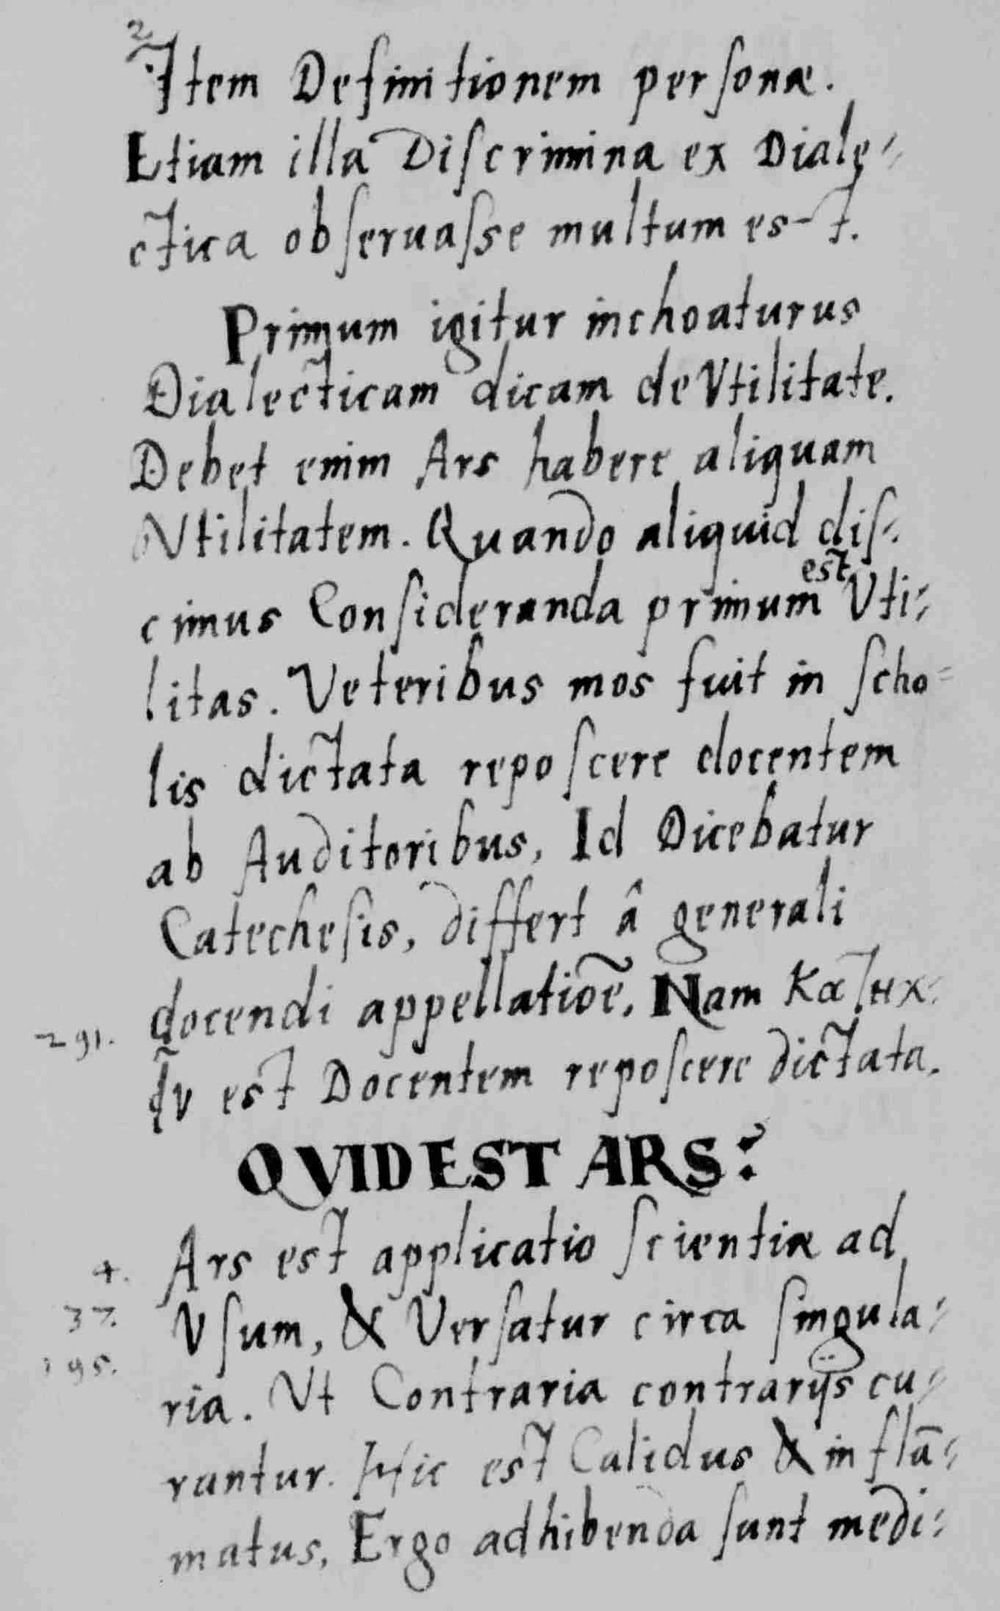 2
Item Definitionem personæ.
Etiam illa Discrimina ex Diale=
ctica obseruasse multum est.
Primum igitur inchoaturus
Dialecticam dicam de Vtilitate.
Debet enim Ars habere aliquam
Vtilitatem. Quando aliquid dis=
est
cimus Consideranda primum Vti=
litas. Veteribus mos fuit in scho=
lis dictata reposcere docentem
ab Auditoribus, Id Dicebatur
Catechesis, differt â generali
docendi appellatioẽ, Nam
291. est Docentem reposcere dictata.
QVID EST ARS?
Ars est applicatio scientiæ ad
4.
37. Vsum, & Versatur circa singula=
195.
ria. Vt Contraria contrarijs cu=
rantur. Hic est Calidus & in flā=
matus, Ergo adhibenda sunt medi=